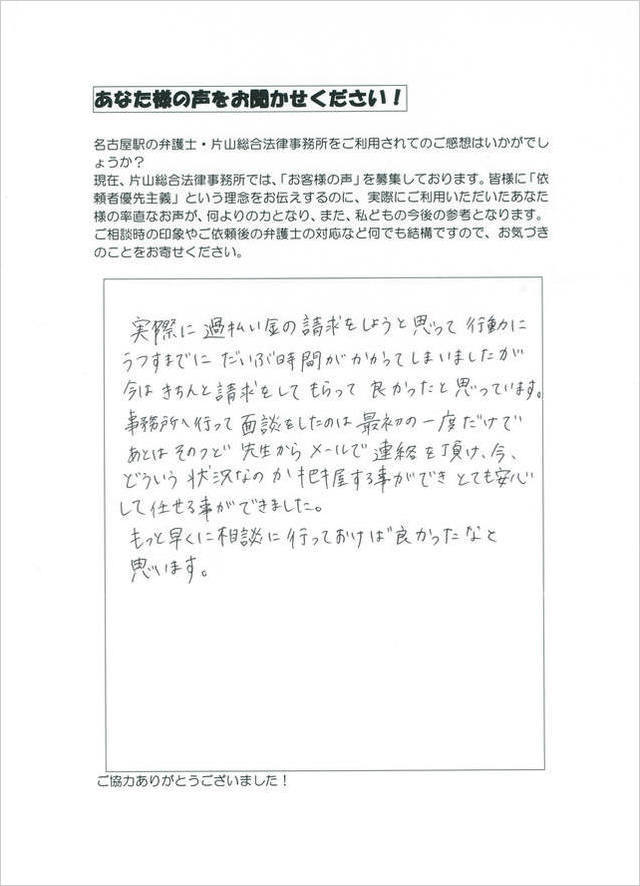 あなた様の声をお聞かせください！
名古屋駅の弁護士・片山総合法律事務所をご利用されてのご感想はいかがでし
ょうか？
現在、片山総合法律事務所では、「お客様の声」を募集しております。皆様に「依
頼者優先主義」という理念をお伝えするのに、実際にご利用いただいたあなた
様の率直なお声が、何よりの力となり、また、私どもの今後の参考となります。
ご相談時の印象やご依頼後の弁護士の対応など何でも結構ですので、お気づき
のことをお寄せください。
実際に過払い金の請求をしようと思って行動に
うつすまでにだいぶ時間がかかってしまいましたが
今はきちんと請求をしてもらって良かったと思っています。
事務所へ行って面談をしたのは最初の一度だけで
あとはそのつど先生からメールで連絡を頂け、今、
どういう状況なのか把握する事ができとても安心
して任せる事ができました。
もっと早くに相談に行っておけば良かったなと
思います。
ご協力ありがとうございました！